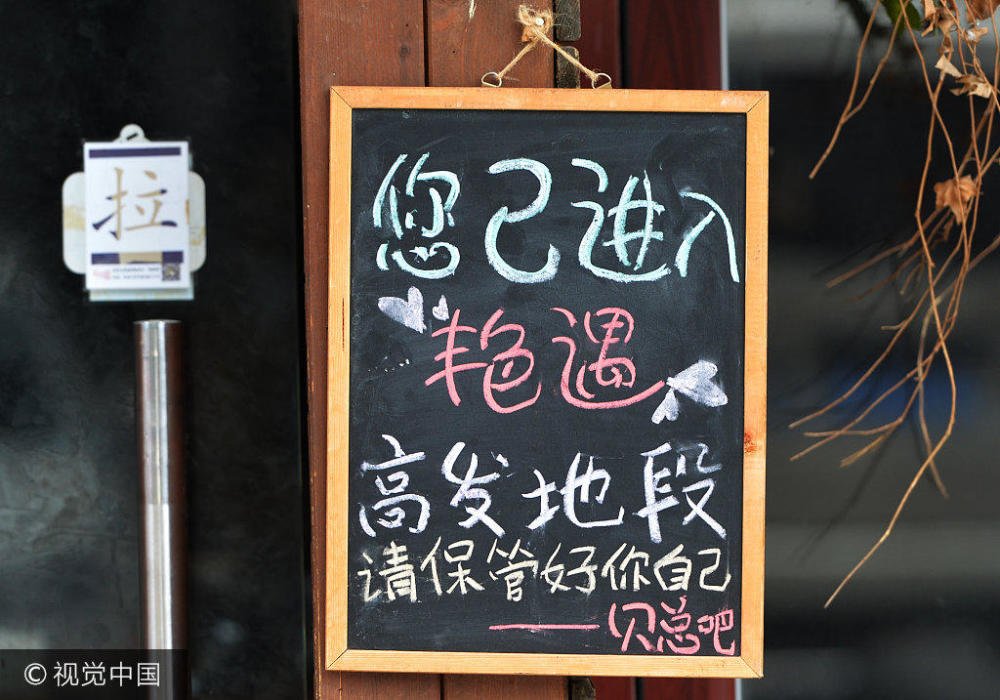 拉
您已进入
艳遇
高发地段
请保管好你自己
——贝总吧
© 视觉中国